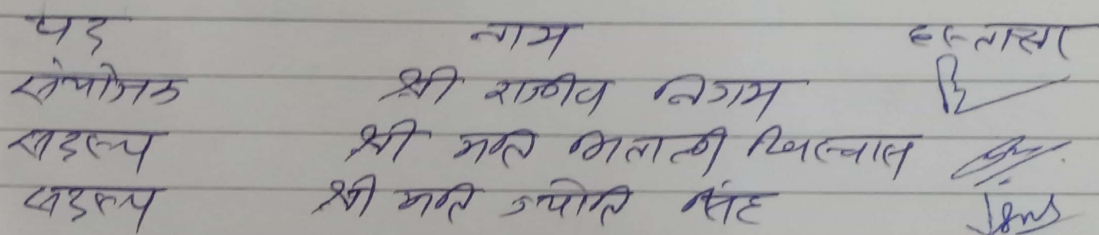 पद नाम हस्ताक्षर
संयोजक श्री राजीव निगम
सदस्य श्री मति मिताली विश्वास
सदस्य श्री मति ज्योति सिंह